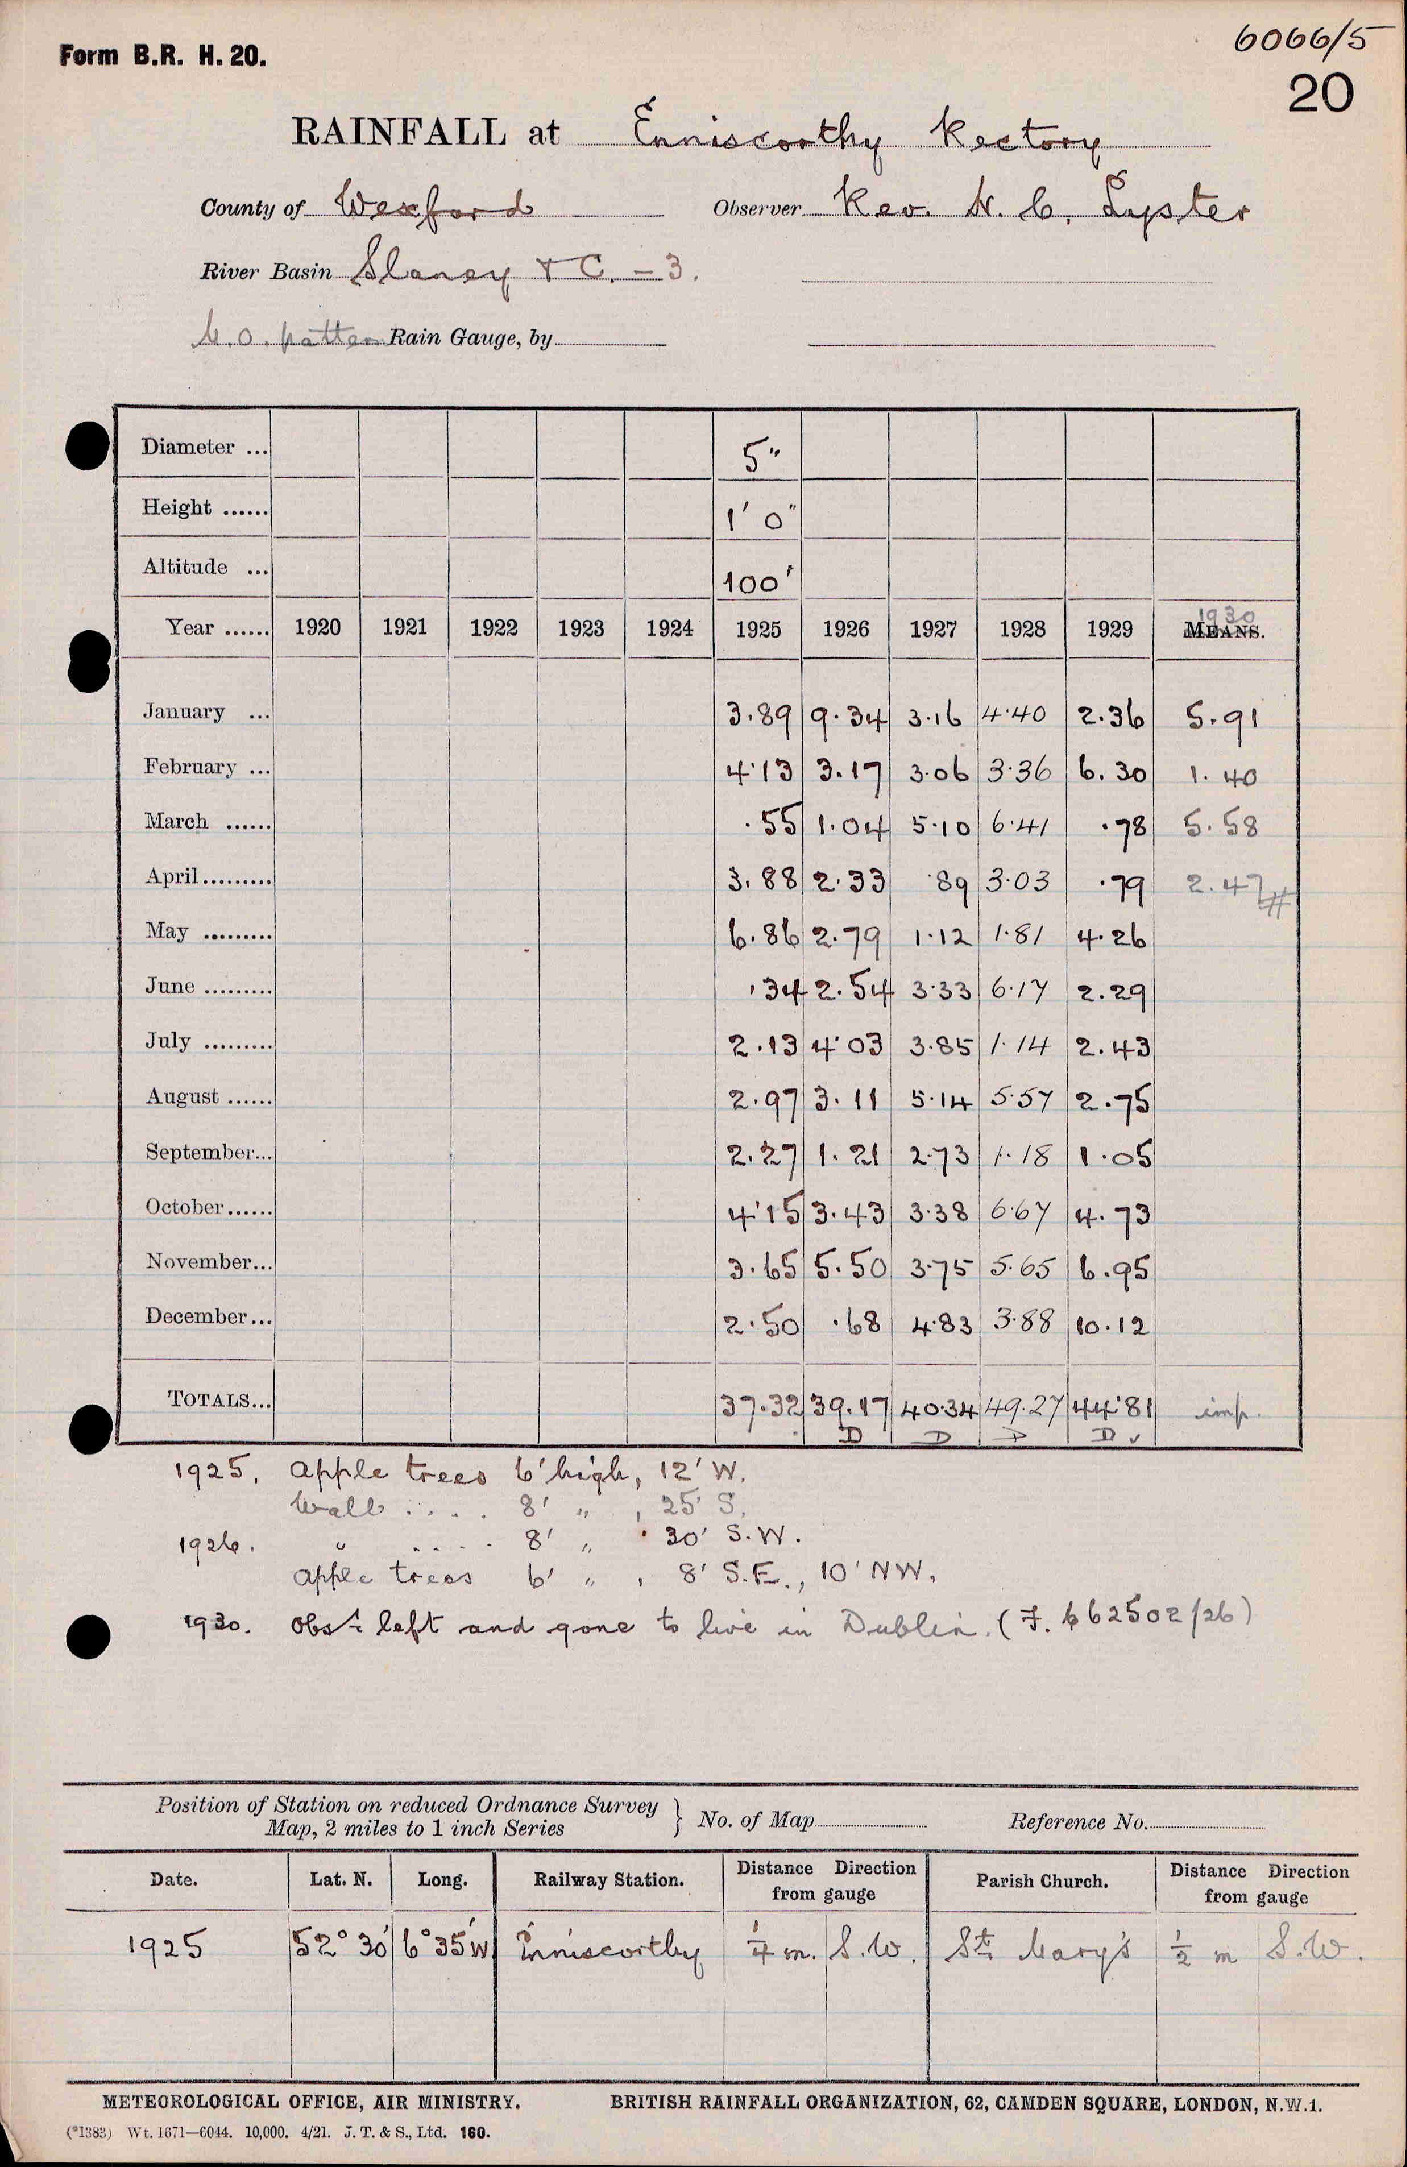 6066/5
Form B.R. H. 20.
20
RAINFALL at Enniscorthy Rectory
County of Wexford Observer Rev. H. C. Lyster
River Basin Slaney & C. - 3.
M.O. pattern Rain Gauge, by
Diameter ... 5"
Height ...... 1' 0"
Altitude ... 100'
Year ...... 1920 1921 1922 1923 1924 1925 1926 1927 1928 1929 MEANS. 1930
January ... 3.89 9.34 3.16 4.40 2.36 5.91
February ... 4.13 3.17 3.06 3.36 6.30 1.40
March ...... .55 1.04 5.10 6.41 .78 5.58
April ......... 3.88 2.33 .89 3.03 .79 2.47 #
May ......... 6.86 2.79 1.12 1.81 4.26
June ......... .34 2.54 3.33 6.17 2.29
July ......... 2.13 4.03 3.85 1.14 2.43
August ...... 2.97 3.11 5.14 5.57 2.75
September... 2.27 1.21 2.73 1.18 1.05
October ...... 4.15 3.43 3.38 6.67 4.73
November... 3.65 5.50 3.75 5.65 6.95
December... 2.50 .68 4.83 3.88 10.12
TOTALS... 37.32 39.17 40.34 49.27 44.81 imp.
D D D D ✓
1925. Apple trees 6' high, 12' W.
Wall .... 8' " , 25' S.
1926. " .... 8' " . 30' S.W.
Apple trees 6' " , 8' S.E., 10' NW.
1930. Obsr. left and gone to live in Dublin. (F. 662502/26)
Position of Station on reduced Ordnance Survey
Map, 2 miles to 1 inch Series } No. of Map Reference No.
Date. Lat. N. Long. Railway Station. Distance Direction from gauge Parish Church. Distance Direction from gauge
1925 52° 30' 6° 35' W Enniscorthy 1/4 m. S.W. St. Mary's 1/2 m S.W.
METEOROLOGICAL OFFICE, AIR MINISTRY. BRITISH RAINFALL ORGANIZATION, 62, CAMDEN SQUARE, LONDON, N.W.1.
(*1383) Wt. 1671—6044. 10,000. 4/21. J. T. & S., Ltd. 160.